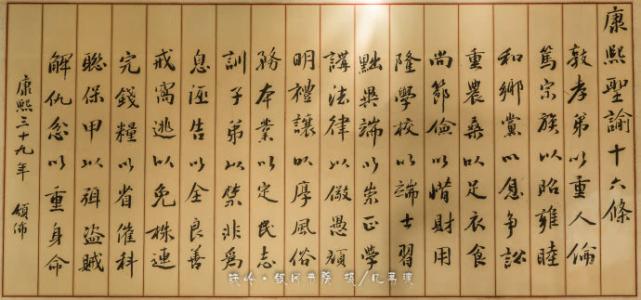 康熙聖諭十六條
敦孝弟以重人倫
篤宗族以昭雍睦
和鄉黨以息争訟
重農桑以足衣食
尚節儉以惜財用
隆學校以端士習
黜異端以崇正學
講法律以儆愚頑
明禮讓以厚風俗
務本業以定民志
訓子弟以禁非爲
息誣告以全良善
戒窩逃以免株連
完錢糧以省催科
聯保甲以弭盜賊
解仇忿以重身命
康熙三十九年 頒佈